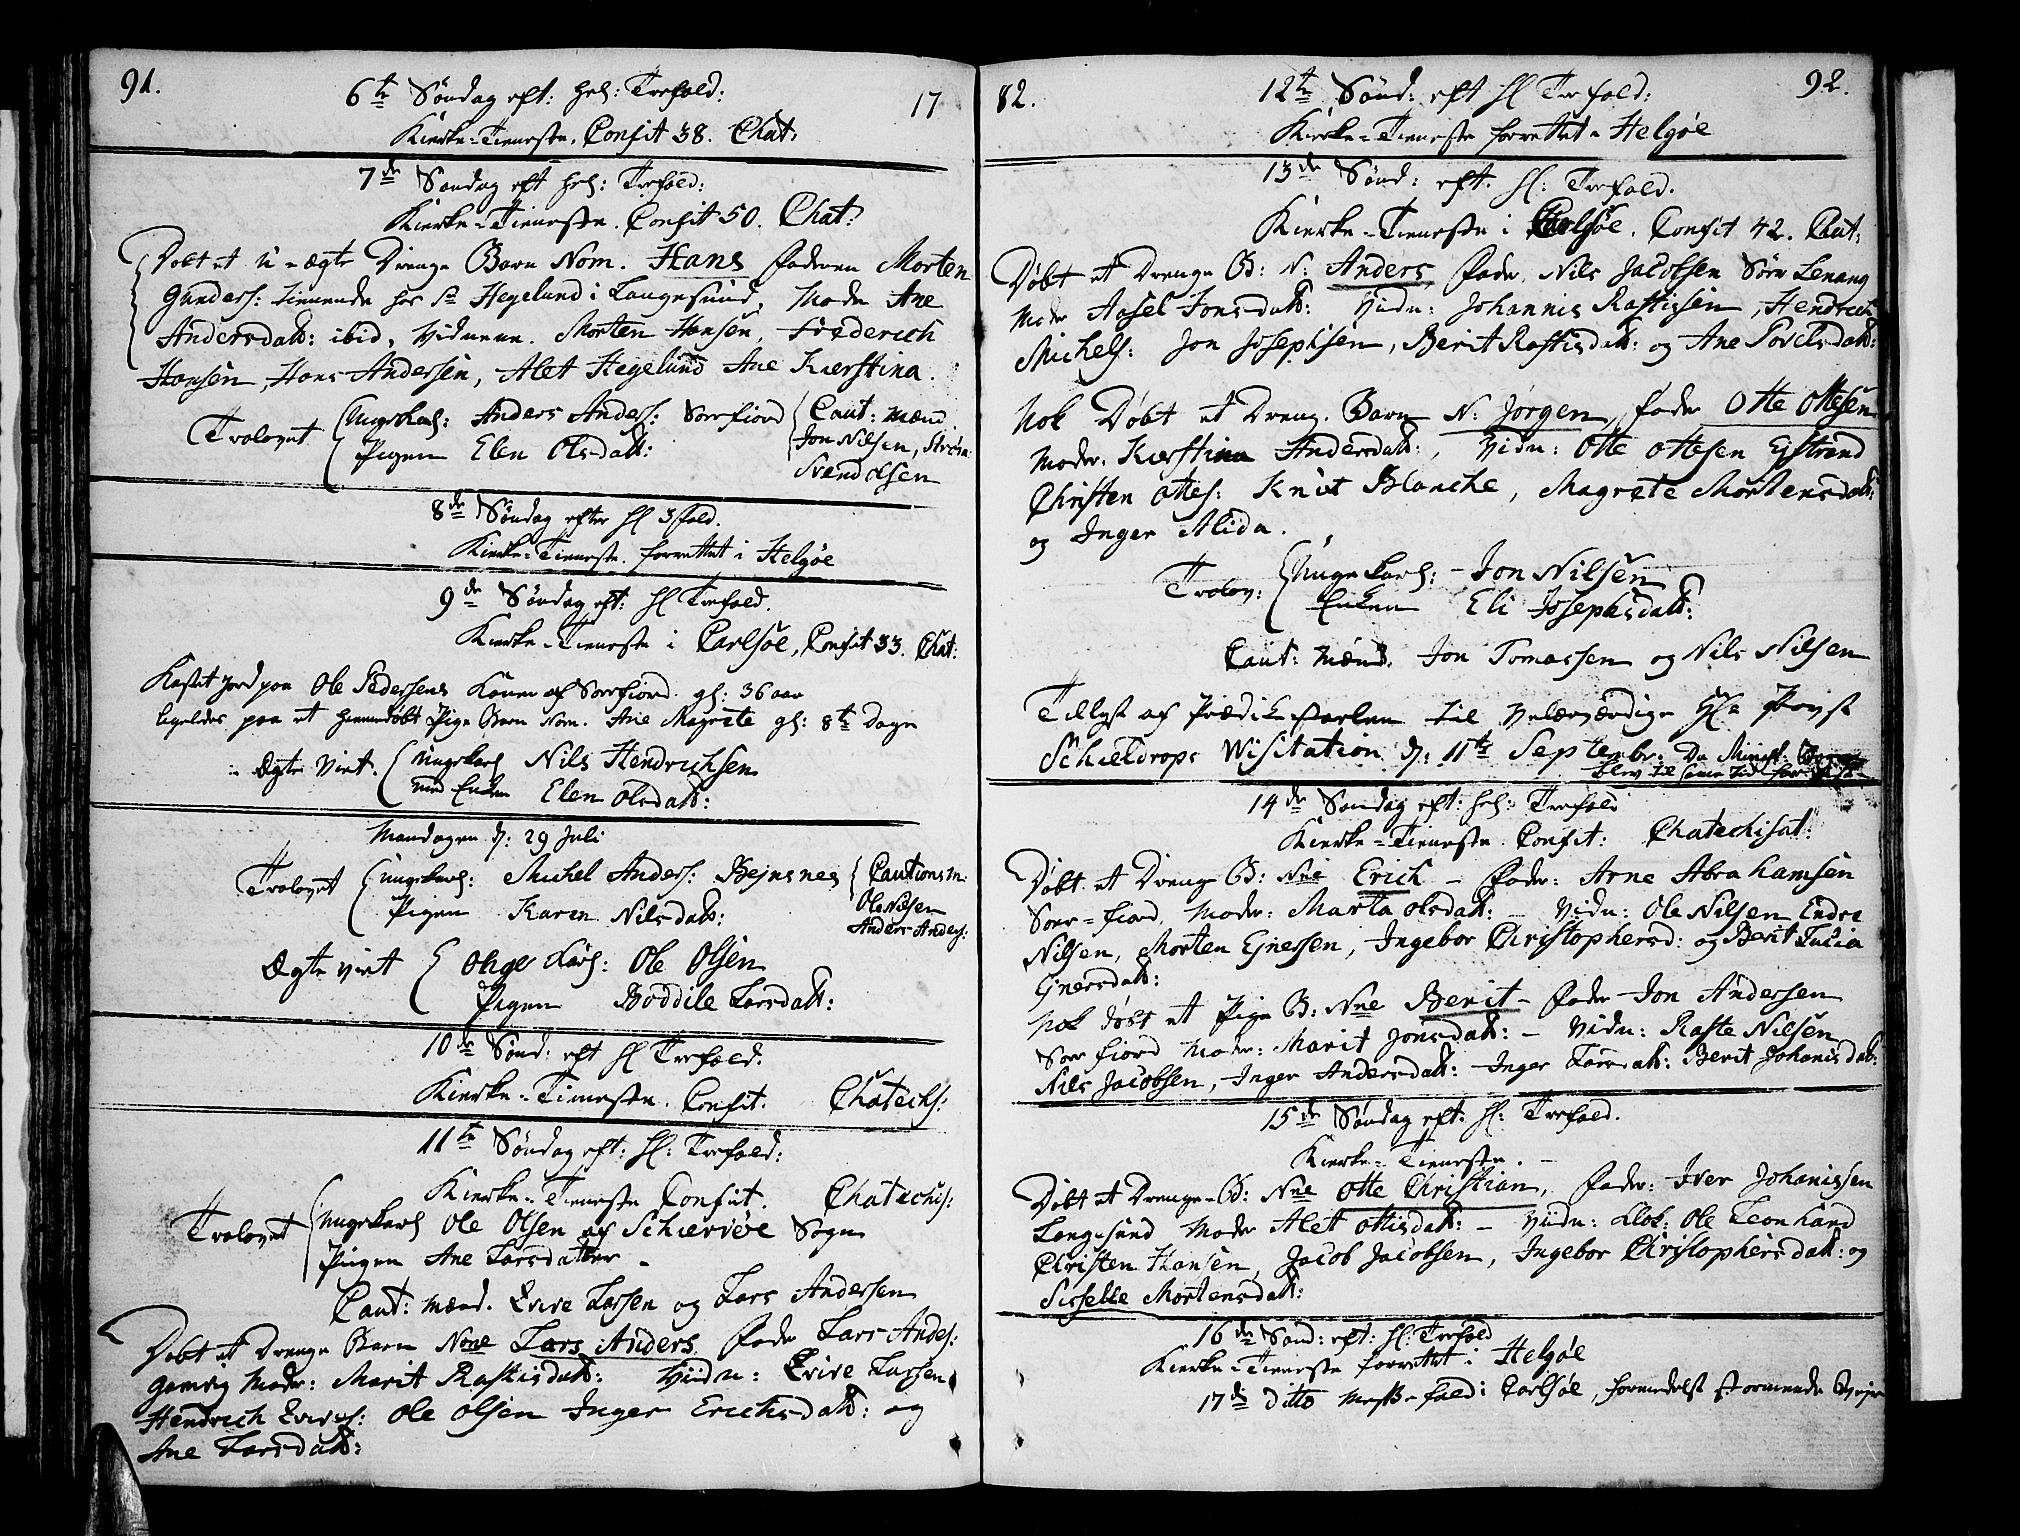 91.
17
6te Søndag eft: hel: Trefold:
Kierke-Tieneste. Confit 38. Chat:
7de Søndag eft hel: Trefold:
Kierke-Tieneste. Confit 50. Chat:
Døbt et U-ægte Drenge Barn Nom. Hans Faderen Morten
Gunders: tienende hos Sr Hegelund i Langesund, Mode Ane
Andersdatt: ibid, Vidnene. Morten Hansen, Frederich
Hansen, Hans Andersen, Alet Hegelund Ane Kierstina.
Trolovet Ungekarl: Anders Anders: Sørefiord Caut: Mænd
Pigen Elen Olsdatt: Jon Nilsen, Strøm
Svend Olsen
8de Søndag efter hl 3fold.
Kierke-Tieneste. forrettet i Helgøe
9de Søndag eft: hl Trefold.
Kierke-Tieneste i Carlsøe, Confit 33. Chat:
Kastet Jord paa Ole Pedersens Kone af Sørefiord. gl: 36 aar
ligeledes paa et hiemmedøbt Pige Barn Nom. Ane Magrete gl: 8te Dage
Ægte Viet. Ungekarl Nils Hendrichsen
med Enken Elen Olsdatt:
Mandagen d: 29 Juli
Trolovet Ungekarl: Michel Anders: Bejnsnes Cautionsm:
Pigen Karen Nilsdatt: Ole Nilsen
Anders Anders:
Ægte viet Unge Karl: Ole Olsen
Pigen Boddile Larsdatt:
10de Sønd: eft hl Trefold:
Kierke-Tieneste. Confit. Chatechs:
11te Søndag eft: hl: Trefold:
Kierke-Tieneste Confit. Chatechis:
Trolovet Ungekarl Ole Olsen af Schiervøe Sogn
Pigen Ane Larsdatter
Caut: Mænd. Evire Larsen og Lars Andersen
Døbt et Drenge Barn None Lars Anders Fader Lars Anders:
Gamvig Moder: Marit Rastisdatt: Vidn: Evire Larsen
Hendrich Evires: Ole Olsen Inger Erichsdatt: og
Ane Larsdatt:
82.
92.
12te Sønd: eft hl Trefold:
Kierke-Tieneste forrettet Helgøe
13de Sønd: eft. hl: Trefold.
Kierke-Tieneste i Carlsøe. Confit 42. Chat:
Døbt et Drenge B: N: Anders Fader Nils Jacobsen Sør Lenang
Moder Aasel Jonsdatt: Vidn: Johannis Rastissen, Hendrich
Michels: Jon Josephsen, Berit Rastisdatt: og Ane Povelsdatt:
Nok Døbt et Dreng. Barn N: Jørgen, Fader Otte Ottesen
Moder: Kierstina Andersdatt:, Vidn: Otte Ottesen Ejstrand
Christen Ottes: Knut Blanche, Magrete Mortensdatt:
og Inger Alida.
Trolov: Ungekarl: Jon Nilsen
Enken Eli Josephsdatt:
Caut: Mænd. Jon Tomassen og Nils Nilsen
Tillyst af Prædikestolen til Velærværdige Hr Provst
Schieldrops Visitation d: 11te Septembr: Da Minist.
blev til samme Tid
14de Søndag eft: hel: Trefold
Kierke-Tieneste. Confit: Chatechisat:
Døbt et Drenge B: Nne Erich Fader: Arne Abrahamsen
Sørefiord, Moder: Marta Olsdatt: Vidn: Ole Nilsen Endre
Nilsen, Morten Ejnersen, Ingebor Christophersd: og Berit Lucia
Ejnersdatt:
Nok døbt et Pige B: Nne Berit Fader Jon Andersen
Sørefiord Moder: Marit Jonsdatt: Vidn: Raste Nilsen
Nils Jacobsen, Inger Andersdatt: Inger Larsdatt: Berit Johanisdatt:
15de Søndag eft: hl: Trefold.
Kierke-Tieneste.
Døbt et Drenge-B: Nne Otte Christian, Fader: Iver Johanissen
Langesund Moder Alett Ottisdatt: Vidn: Klok: Ole Leonhard
Christen Hansen, Jacob Jacobsen, Ingebor Christophersdatt: og
Sisselle Mortensdatt:
16de Sønd: eft: hl: Trefold
Kierke-Tieneste forrettet i Helgøe
17de Ditto Messefald i Carlsøe, formedelst stormende Vejr